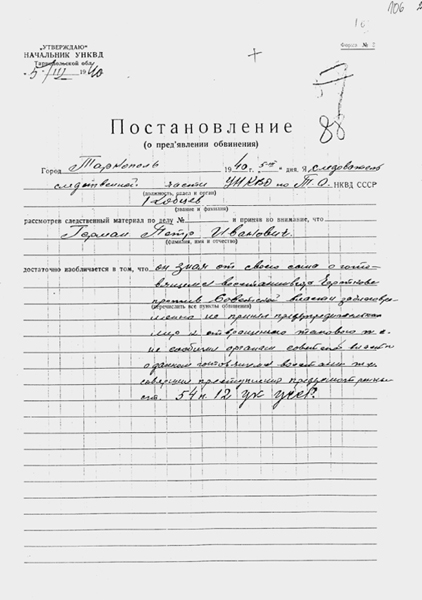 106 2
Форма № 2
„УТВЕРЖДАЮ“
НАЧАЛЬНИК УНКВД
Тарнопольской обл.
„5“ III 1940
88
Постановление
(о пред'явлении обвинения)
Город Тарнополь 1940 г. 5-III дня. Я, следователь
следственной части УНКВД по Т.О. НКВД СССР
(должность, отдел и орган)
(звание и фамилия)
рассмотрев следственный материал по делу № и приняв во внимание, что
Герман Петр Иванович
(фамилия, имя и отчество)
достаточно изобличается в том, что он зная от своего сына о готовящемся
восстании в Чорткове
против Советской власти
(перечислить все пункты обвинения)
не принял
мер к
не сообщил органам советской власти
о данном готовящемся восстании т.е.
совершил преступления предусмотренные
ст. 54 п. 12 УК УССР.